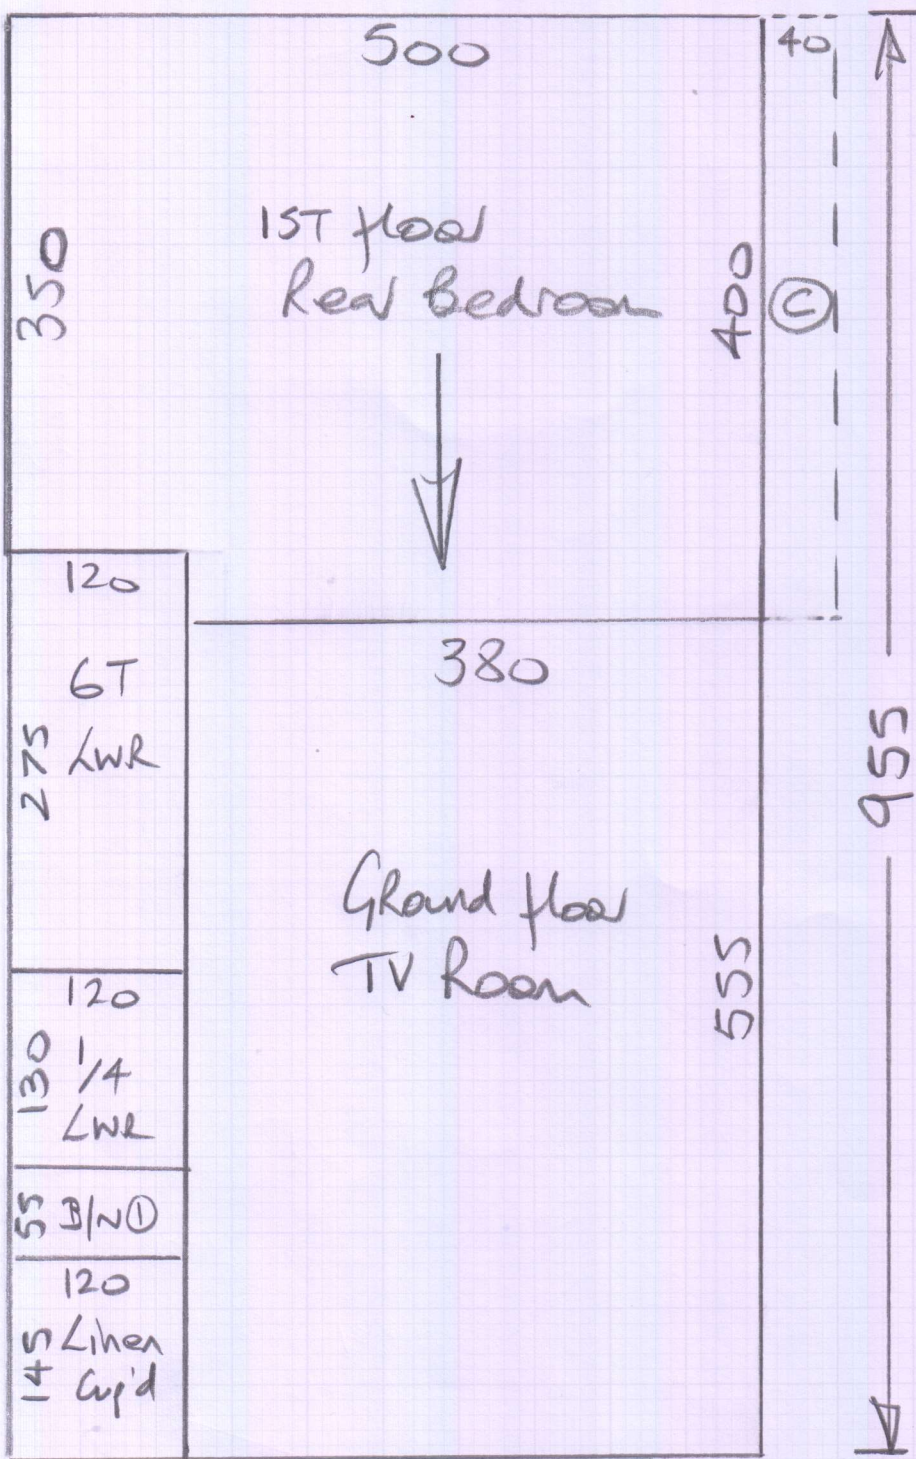 500
40
1ST floor
Rear Bedroom
350
400
C
120
6T
LWR
275
380
955
Ground floor
TV Room
555
120
1/4
LWR
130
55 B/N 1
120
Linen
Cup'd
145